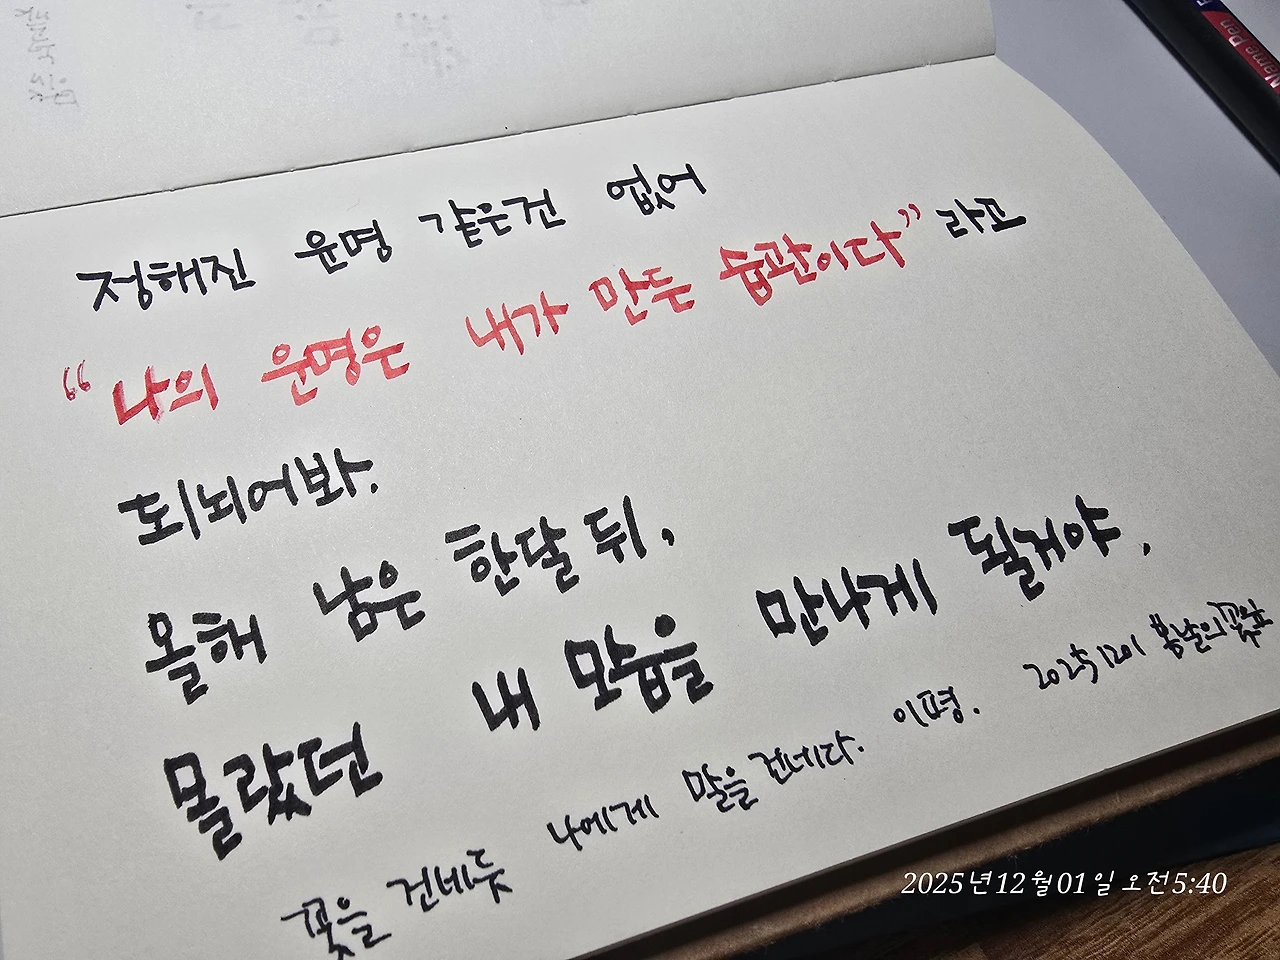 정해진 운명 같은건 없어
“나의 운명은 내가 만든 습관이다” 라고
되뇌어봐.
올해 남은 한달 뒤,
몰랐던 내 모습을 만나게 될거야.
꽃을 건네듯 나에게 말을 건네다. 이평. 20251201 봄날의꽃잎
Name Pen
2025년12월01일 오전5:40